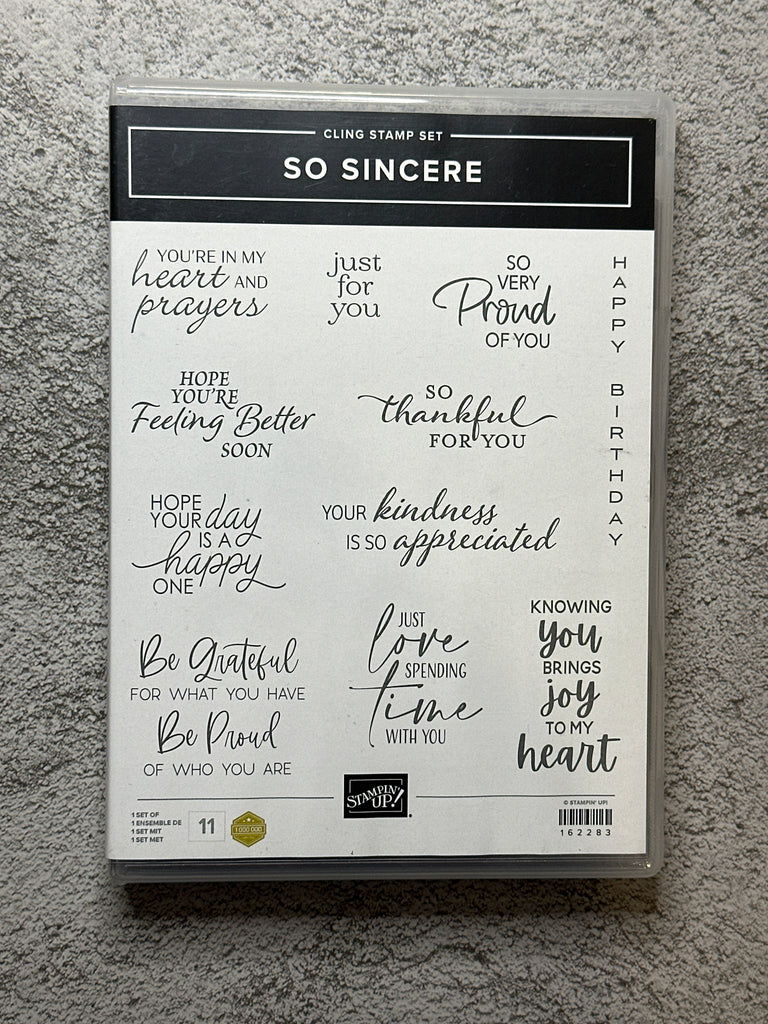 CLING STAMP SET
SO SINCERE
YOU'RE IN MY
heart AND
prayers
just
for
you
SO
VERY
Proud
OF YOU
HAPPY BIRTHDAY
HOPE
YOU'RE
Feeling Better
SOON
SO
thankful
FOR YOU
HOPE
YOUR day
IS A
happy
ONE
YOUR kindness
IS SO appreciated
Be Grateful
FOR WHAT YOU HAVE
Be Proud
OF WHO YOU ARE
JUST
love
SPENDING
time
WITH YOU
KNOWING
you
BRINGS
joy
TO MY
heart
1 SET OF
1 ENSEMBLE DE
1 SET MIT
1 SET MET
11
1 000 000
STAMPIN'
UP!
© STAMPIN' UP!
162283